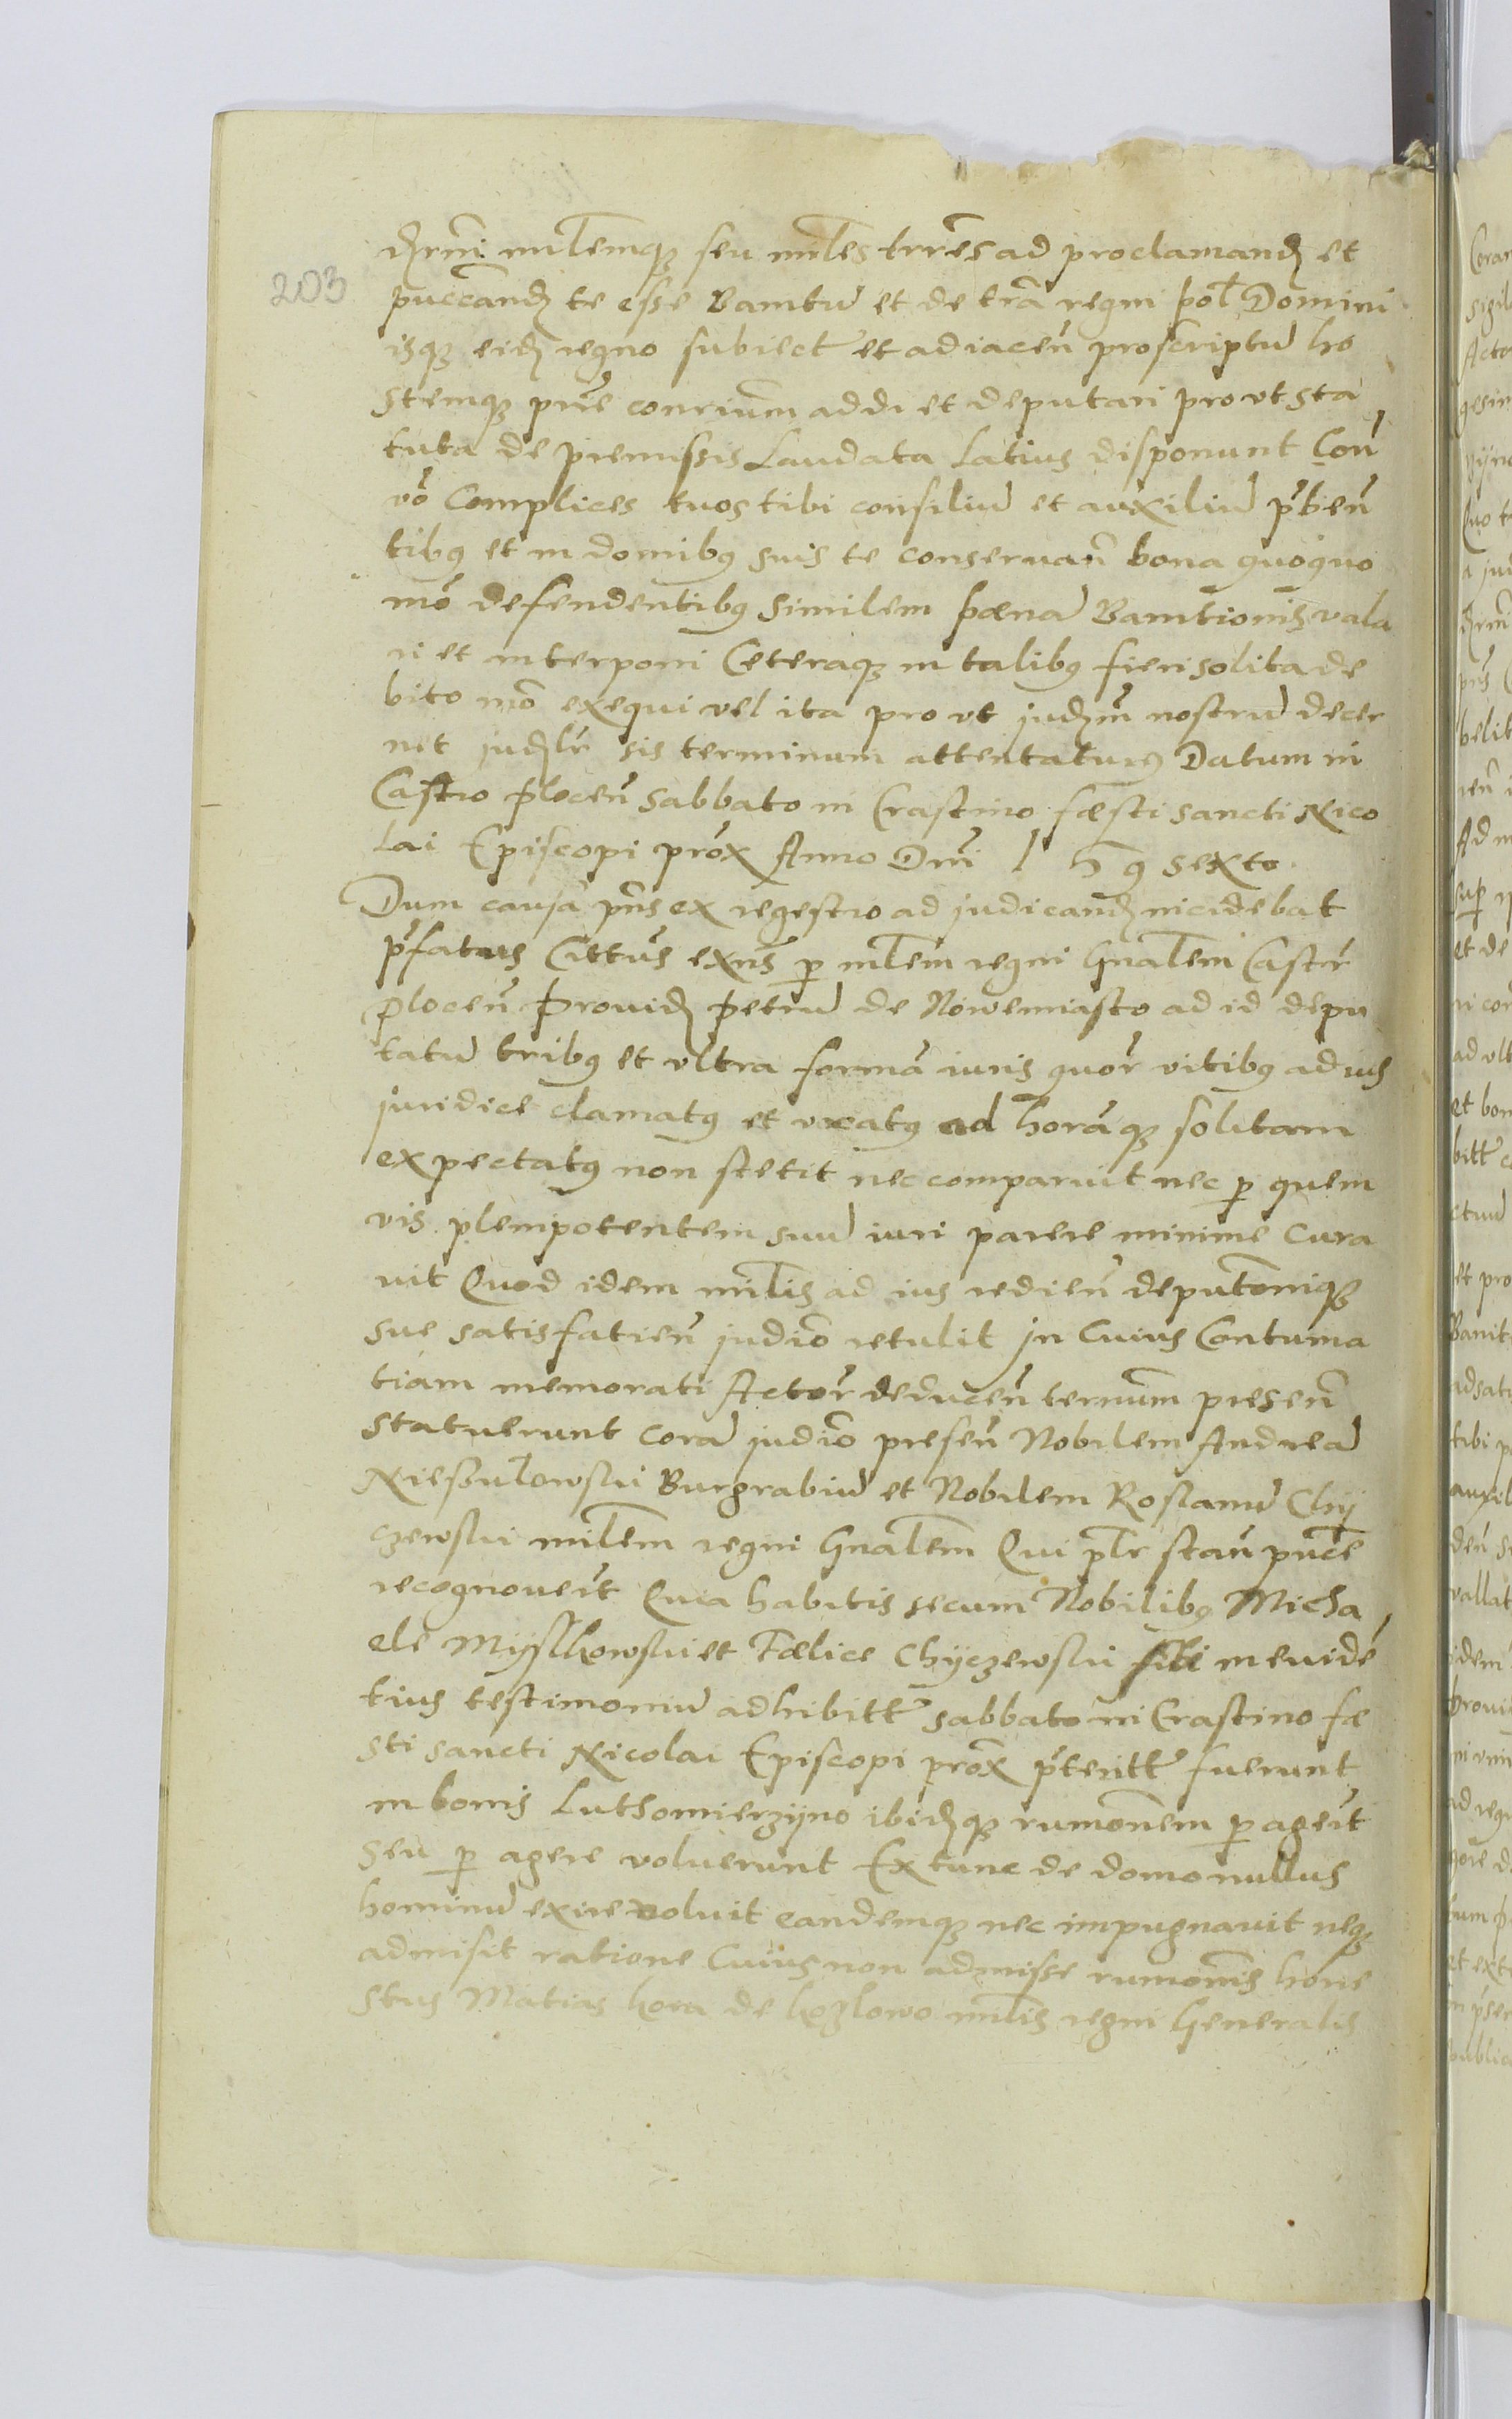 203
mltemq₃ seu mltes trrēs ad proclamand et
puccand te esse Banitū et de trā regni pol Domini
isq₃ eid regno subiect et adiaceñ proscriptū ho
stemq₃ pñe addi et deputari pro ut sta
tuta de premissis Laudata Latius disponunt Coñ
vō Complices tuos tibi consiliū et auxiliū pʳbeñ
tibꝯ et in domibꝯ suis te conservañ bona quoquo
mō defendentibꝯ similem pœnā Banitionis vala
ri et interponi Ceteraq₃ in talibꝯ fieri solita de
bito mō exequi vel ita pro ut judm nostrū decer
net judlr sis terminum attentaturꝯ Datum in
Castro ploceñ sabbato in Crastino fæsti sancti Nico
lai Episcopi prōx Anno Dñi 1 5 9 sexto
Dum causa pñs ex regestro ad judicand incidebat
pʳfatus Cittūs exñs p mltem regni Gñalem Castr
ploceñ Provid petrū de Nowemiasto ad id depu
tatū tribꝯ et ultra formā iuris quor vitibꝯ ad ius
juridice clamatꝯ et vocatꝯ ad horāq₃ solitam
expectatꝯ non stetit nec comparuit nec p quem
vis plenipotentem suū iuri parere minime cura
vit Quod idem mltis ad ius redieñ deputōniq₃
sue satisfatieñ judio retulit In Cuius Contuma
tiam memorati Actor deduceñ ternum preseñ
statuerunt corā judio preseñ Nobilem Andreā
Burgrabiū et Nobilem Roslanū Chy
czewski mltem regni Gñalem Qui plr stañ puce
recognoverūt Quia habitis secum Nobilibꝯ Micha
ele Myslkowski et Fælice Chyczewski sibi in evidē
tius testimoniū adhibitt sabbato in Crastino fæ
sti sancti Nicolai Episcopi prox pʳteritt fuerunt
in bonis Luthomierzyno ibidq₃ rumonem p agerēt
seu p agere voluerunt Ex tunc de domo nullus
hominū exire voluit eandemq₃ nec impugnavit neq₃
admisit ratione Cuius non admisse rumonis hone
stus Matias kora de kozlowo mltis regni Generalis